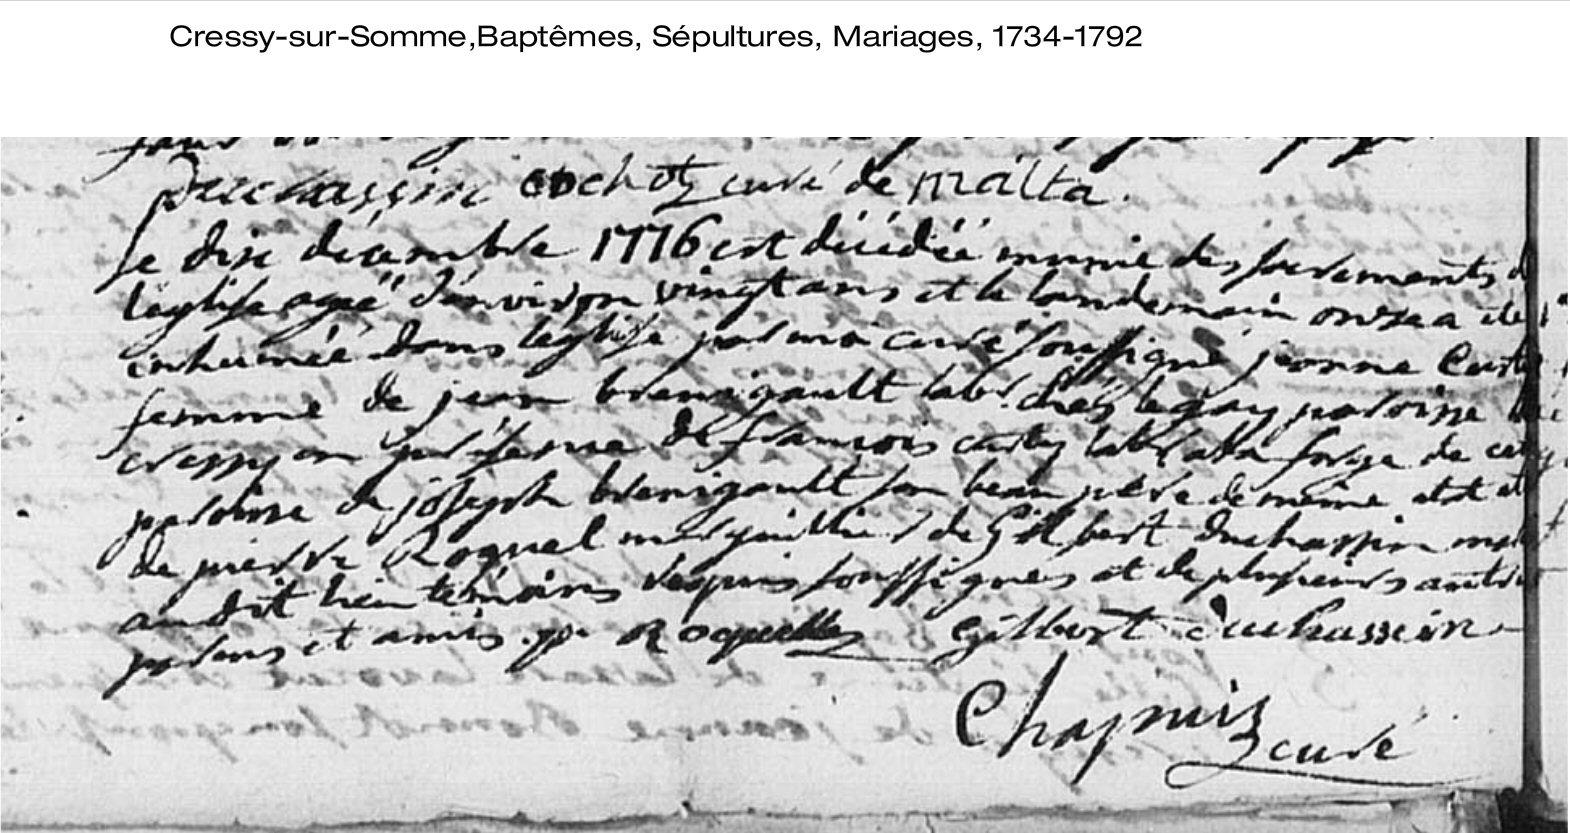 Cressy-sur-Somme,Baptêmes, Sépultures, Mariages, 1734-1792
Duchassin cochotz curé de malta.
le dixe décembre 1776 est décédée munie des sacrements
l'églisse agée d'environ vingt ans et le landemain onze a été
inhumée dans l'églisse par moi curé soussigné jeanne
femme de jean brenigault labr. chés legay paroisse
cressy en présence de francois labr a la forge de cette
paroisse de joseph brenigault son beau père de même etat
de pierre Roquel marguillier de Gilbert duchassin
audit lieu temoins requis soussignes et de plusieurs autres
parens et amis. p. Roquelle Gilbert duchassein
Chapuis curé